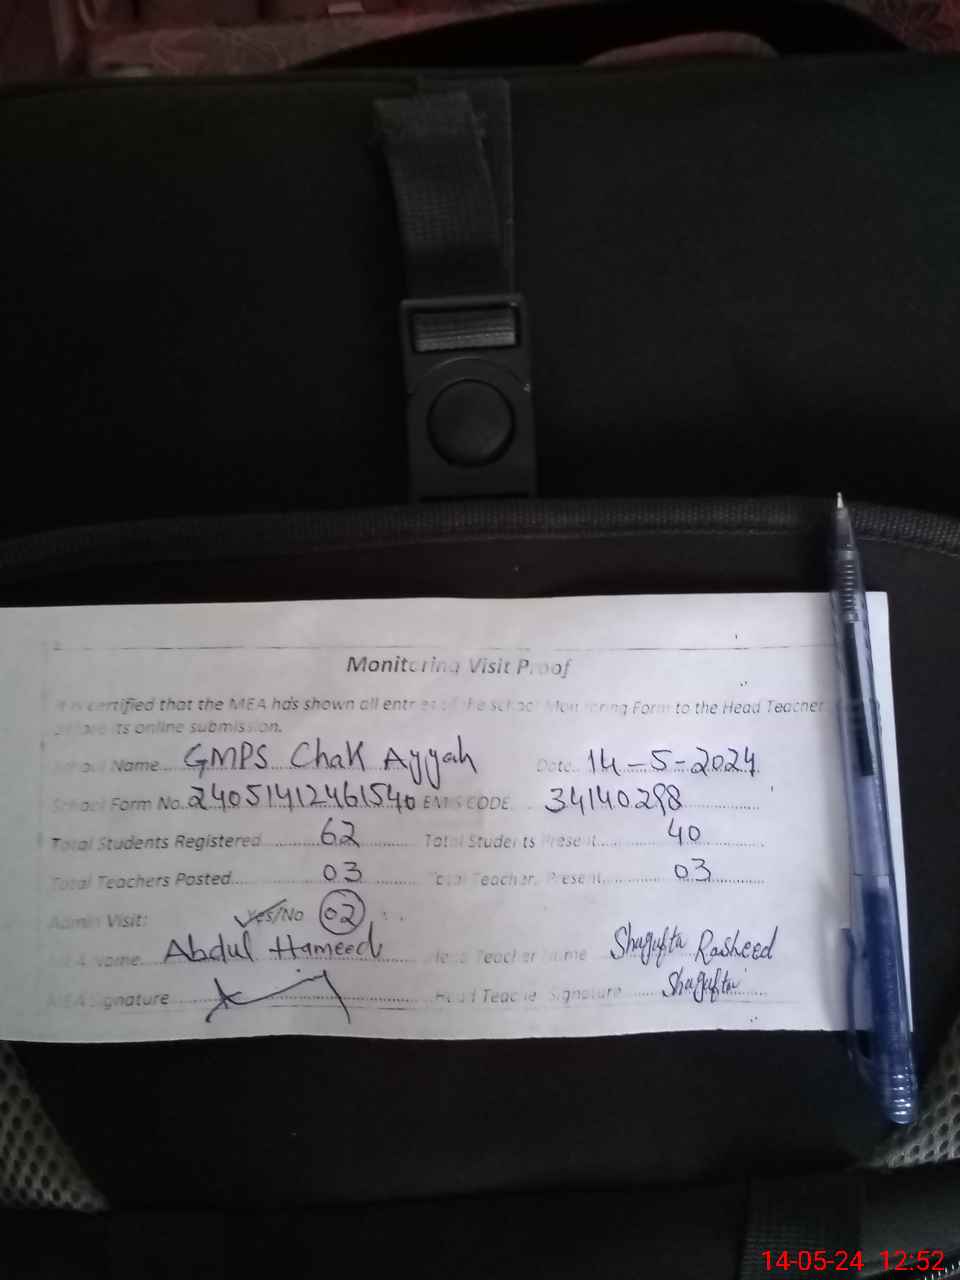 Monitoring Visit Proof
It is certified that the MEA has shown all entries of the school Monitoring Form to the Head Teacher
before its online submission.
School Name GMPS Chak Ayyah Date 14-5-2024
School Form No. 24051412461540 EMIS CODE 34140298
Total Students Registered 62 Total Students Present 40
Total Teachers Posted 03 Total Teachers Present 03
Admin Visit: Yes/No 02
MEA Name Abdul Hameed Head Teacher Name Shagufta Rasheed
MEA Signature Head Teacher Signature Shagufta
14-05-24 12:52